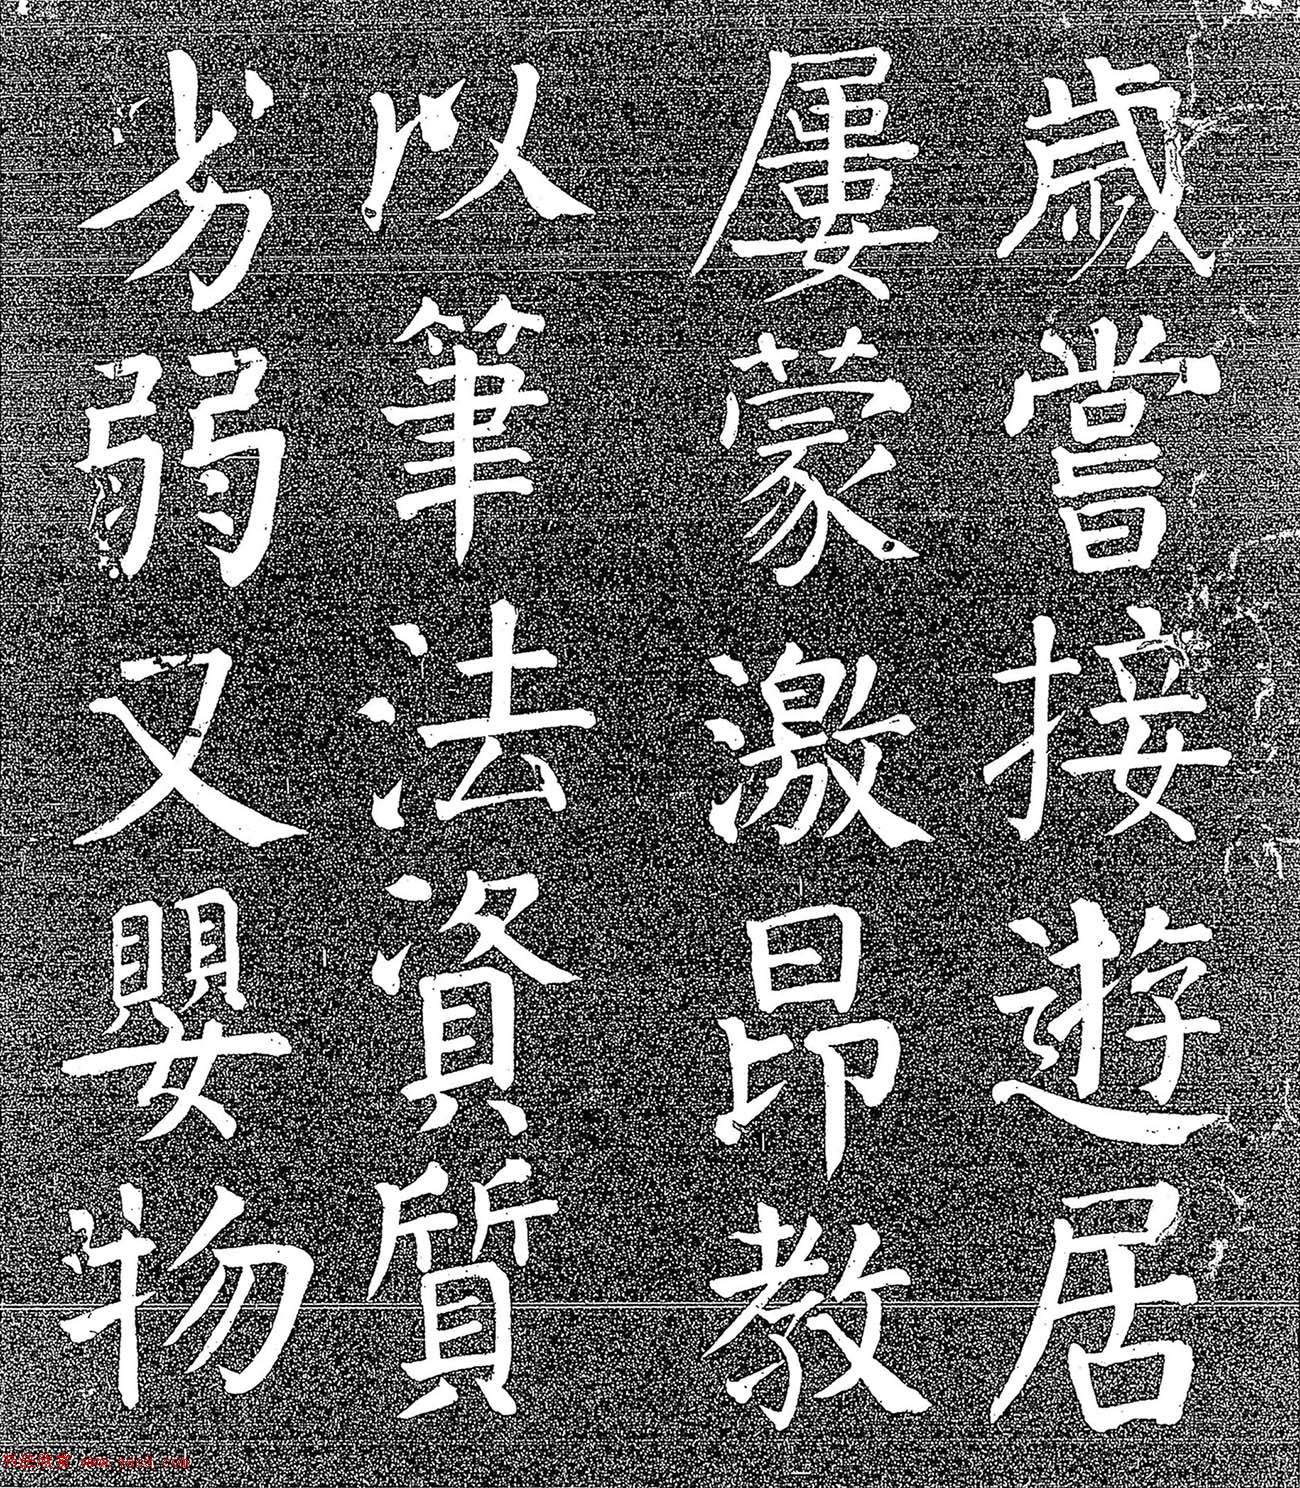 歲嘗接遊居
屢蒙激昂教
以筆法資質
劣弱又嬰物
www.yac8.com